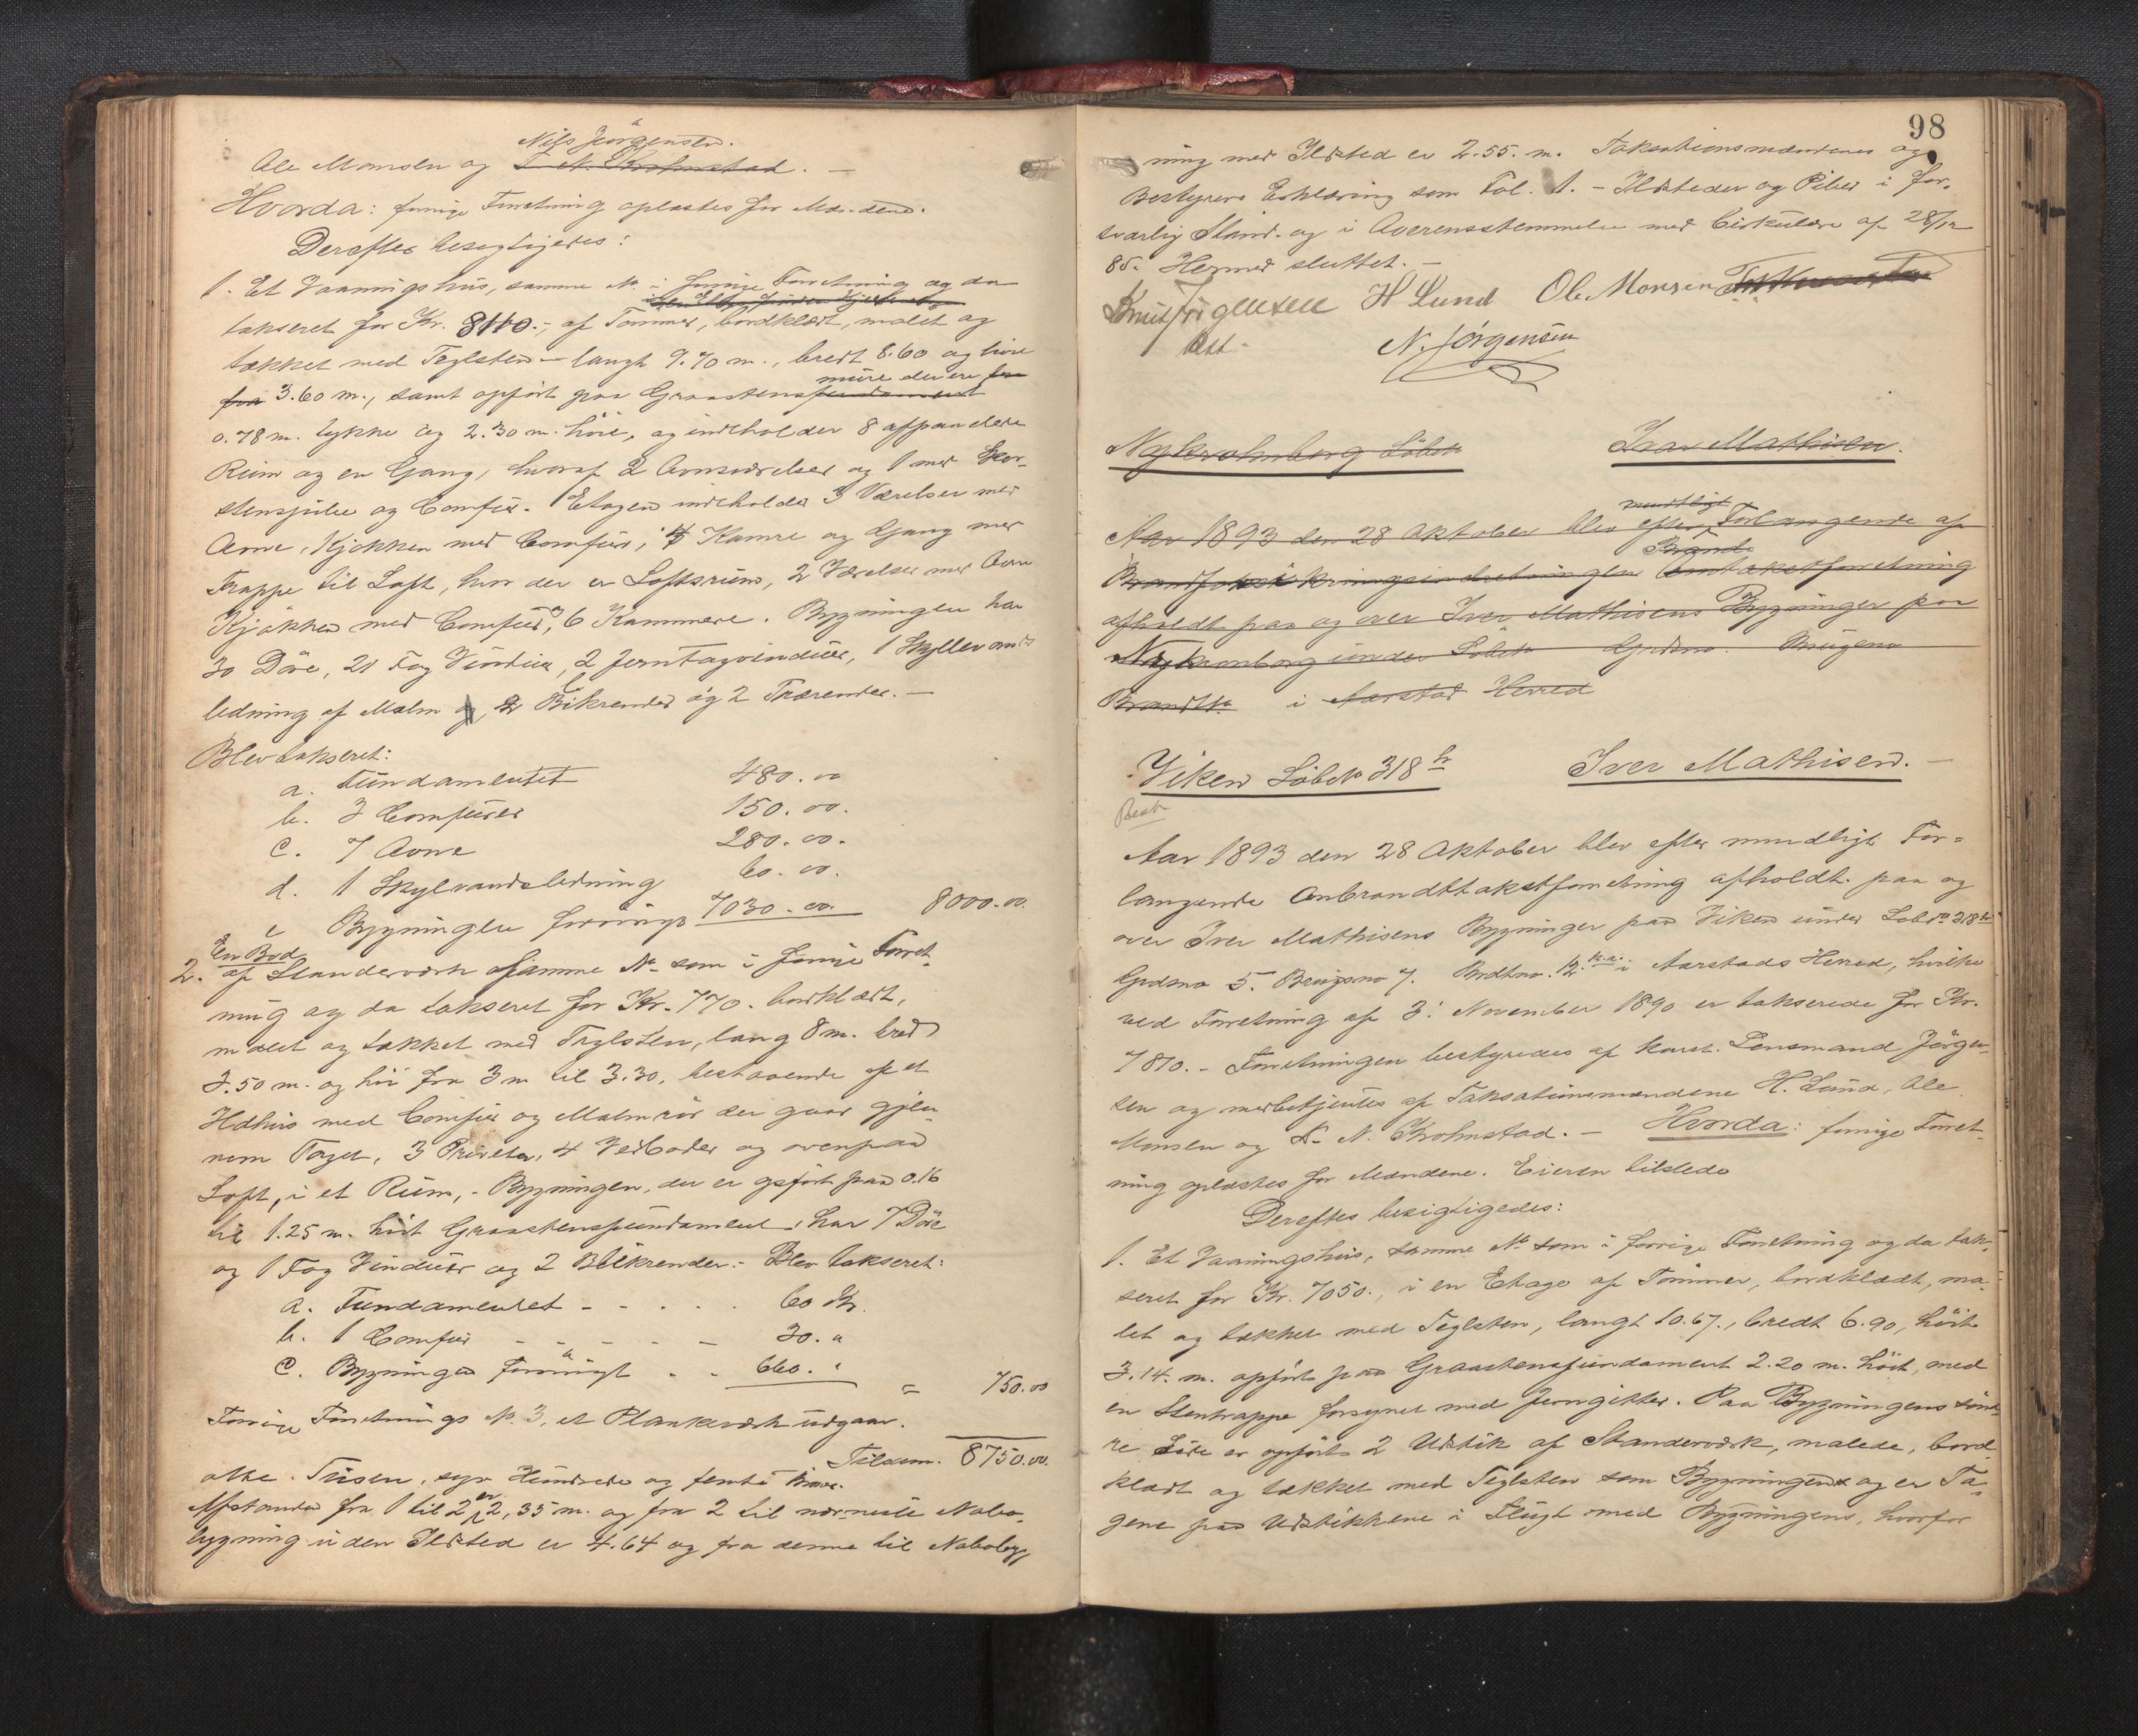 Nils Jörgensen.
Ole Monsen og T. N. Krohnstad. —
Hvorda: forrige Forretning oplæstes for Mændene.
Derefter besigtigedes:
1. Et Vaaningshus, samme No i forrige Forretning og da
takseret for Kr. 8110.-, af Tømmer, bordklædt, malet og
tækket med Teglsten — langt 9.70 m., bredt 8.60 og høit
mure der ere
fra 3.60 m., samt opført paa Graastensfundament
0.78 m. tykke og 2.30 m. høie, og indeholder 8 afpanelede
Rum og en Gang, hvoraf 2 Ovnsværelser og 1 med Skor-
stenspibe og Comfur. Etagen indeholder 3 Værelser med
Ovne, Kjøkken med Comfur, 4 Kamre og Gang med
Trappe til Loft, hvor der er Loftsrum, 2 Værelser med Ovn
Kjøkken med Comfur, 6 Kammere. Bygningen har
30 Døre, 21 Fag Vinduer, 2 Jerntagvinduer, 1 Skyllevands
ledning af Malm og, 2 Blikrender og 2 Trærender. —
Blev takseret:
a. Fundamentet 480.00
b. 3 Comfurer 150.00.
c. 7 Ovne 280.00.
d. 1 Skylvandsledning 60.00.
e Bygningen forøvrigt 7030.00. 8000.00.
En Bod
2. af Standerværk samme No som i forrige Forret-
ning og da takseret for Kr. 770. bordklædt,
malet og tækket med Teglsten, lang 8 m. bred
3.50 m. og høi fra 3 m til 3.30, bestaaende af et
Ildhus med Comfur og Malmrør der gaar gjen-
nem Taget, 3 Priveter, 4 Vedboder og ovenpaa
Loft, i et Rum, - Bygningen, der er opført paa 0.16
til 1.25 m. høit Graastensfundament, har 7 Døre
og 1 Fag Vinduer og 2 Blikrender. - Blev takseret:
a. Fundamentet - - . . . 60 Kr.
b. 1 Comfur - - - - - 30. "
c. Bygningen forøvrigt . . 660. " = 750.00
Forrige Forretnings No 3, et Plankeværk udgaar.
Tilsam. 8750.00.
otte Tusen, syv Hundrede og femti Kroner.
Afstanden fra 1 til 2 er 2,35 m. og fra 2 til nærmeste Nabo-
bygning uden Ildsted er 4.64 og fra denne til Nabobyg-
98
ning med Ildsted er 2.55. m. Taksationsmændenes og
Bestyrers Erklæring som Fol. 1. - Ildsteder og Piber i for-
svarlig Stand og i Overensstemmelse med Cirkulære af 28/12
85. Hermed sluttet. —
Knut Jörgensen H Lund Ole Monsen
best. N. Jörgensen
Nykrohnborg Löbeno Ivar Mathisen.
mundtligt
Aar 1893 den 28 Oktober blev efter Forlangende af
Brand-
Brandforsikringsindretningen Omtakstforretning
afholdt paa og over Iver Mathisens Bygninger paa
Nykronborg under Löbeno Gårdsno. Brugsno
Brandtno i Aarstad Herred
Viken Löbeno 318 br Iver Mathisen. —
Best.
Aar 1893 den 28 Oktober blev efter mundligt For-
langende Ombrandttakstforretning afholdt paa og
over Iver Mathisens Bygninger paa Viken under Lobno 318 br
Grdsno 5. Brugsno 7. Brdtno. 12 i Aarstads Herred, hvilke
ved Forretning af 3. November 1890 er takserede for Kr.
7810. - Forretningen bestyredes af konst. Lensmand Jörgen-
sen og medbetjentes af Taksationsmændene H. Lund, Ole
Monsen og T. N. Krohnstad. — Hvorda: forrige Forret-
ning oplæstes for Mændene. Eieren tilstede
Derefter besigtigedes:
1. Et Vaaningshus, samme No som i forrige Forretning og da tak-
seret for Kr. 7050., i en Etage af Tømmer, bordklædt, ma-
let og tækket med Teglsten, langt 10.67., bredt 6.90, høit
3.14. m. opført paa Graastensfundament 2.20 m. høit, med
en Stentrappe forsynet med Jerngitter. Paa Bygningens sönd-
re Side er opført 2 Udstik af Standerværk, malede, bord
klædt og tækket med Teglsten som Bygningen og er Ta-
gene paa Udstikkene i Flugt med Bygningens, hvorfor